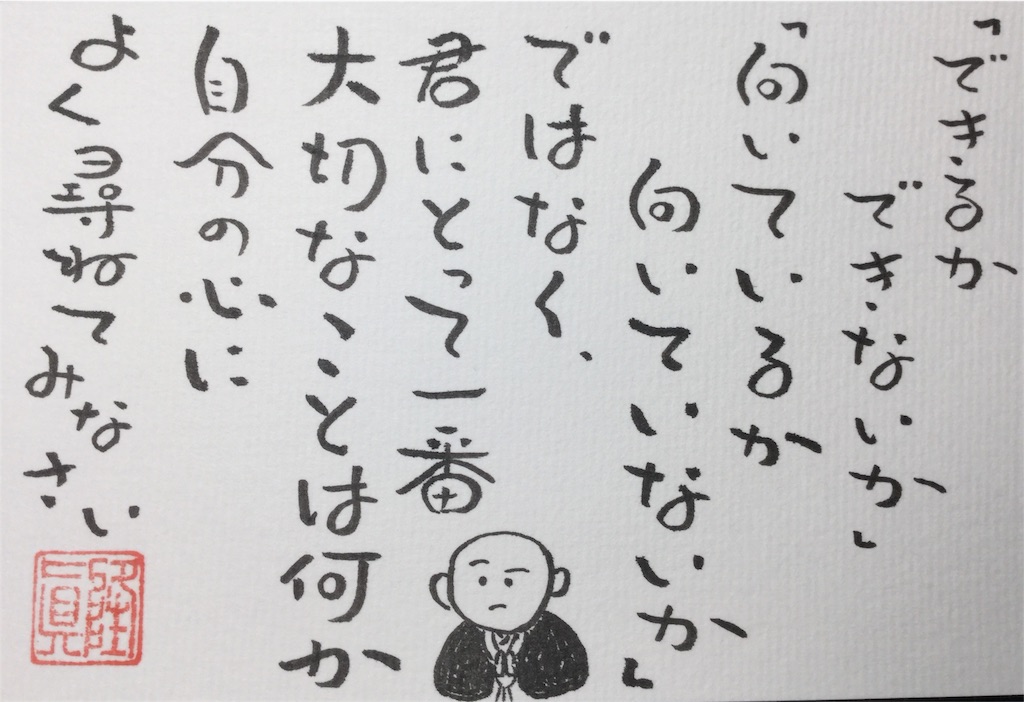 「できるか
できないか」
「向いているか
向いていないか」
ではなく、
君にとって一番
大切なことは何か
自分の心に
よく尋ねてみなさい